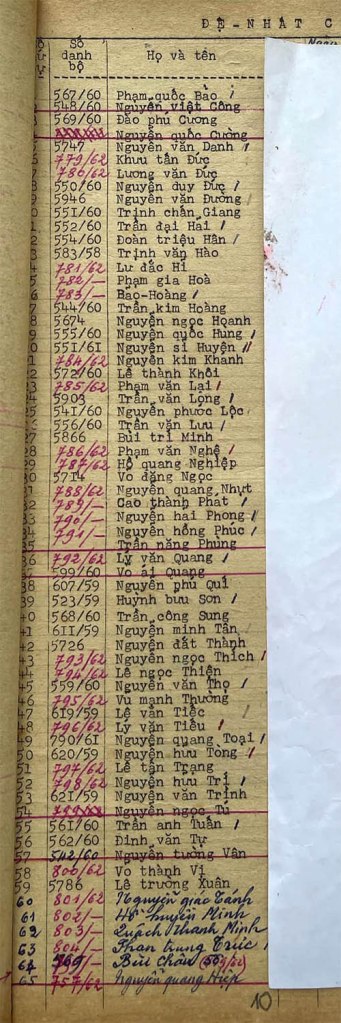 ĐỆ-NHẤT C
Số danh bộ Họ và tên
567/60 Phạm quốc Bảo /
548/60 Nguyễn việt Công
569/60 Đào phú Cương
Nguyễn quốc Cường
5747 Nguyễn văn Danh /
779/62 Khưu tấn Đức
780/62 Lương văn Đức
550/60 Nguyễn duy Đức /
5946 Nguyễn văn Đường /
55I/60 Trịnh chấn Giang
552/60 Trần đại Hải /
554/60 Đoàn triệu Hân /
583/58 Trịnh văn Hào
781/62 Lư đắc Hỉ
782/- Phạm gia Hoà
783/- Bảo-Hoàng /
544/60 Trần kim Hoàng
5674 Nguyễn ngọc Hoanh
555/60 Nguyễn quốc Hưng /
55I/6I Nguyễn sĩ Huyện //
784/62 Nguyễn kim Khanh
572/60 Lê thành Khôi
785/62 Phạm văn Lai /
5903 Trần văn Long /
54I/60 Nguyễn phước Lộc
556/60 Trần văn Lưu /
5866 Bùi trí Minh
786/62 Phạm văn Nghệ /
787/62 Hồ quang Nghiệp
57I4 Võ đăng Ngọc
788/62 Nguyễn quang Nhựt
789/- Cao thành Phát /
790/- Nguyễn hải Phong /
791/- Nguyễn hồng Phúc /
35 Trần năng Phùng
36 792/62 Lý văn Quang /
599/60 Võ ái Quang
38 607/59 Nguyễn phú Quí
39 523/59 Huỳnh bưu Sơn /
40 568/60 Trần công Sung
41 6II/59 Nguyễn minh Tân
42 5726 Nguyễn đắt Thành
43 793/62 Nguyễn ngọc Thích /
44 794/62 Lê ngọc Thiện
45 559/60 Nguyễn văn Thọ /
46 795/62 Vũ mạnh Thường
47 6I9/59 Lê văn Tiếc
48 796/62 Lý văn Tiếu /
49 760/6I Nguyễn quang Toại /
50 620/59 Nguyễn hữu Tòng
51 797/62 Lê tấn Trạng
52 798/62 Nguyễn hữu Trí /
53 62I/59 Nguyễn văn Trinh
54 Nguyễn ngọc Tú
55 56I/60 Trần anh Tuấn /
56 562/60 Đinh văn Tự
57 542/60 Nguyễn tường Vân
58 800/62 Võ thành Vị
59 5786 Lê trường Xuân
60 801/62 Nguyễn giao Tánh
61 802/- Huyền Minh
62 803/- Quách Thanh Minh
63 804/- Phan trung Trúc /
64 Bửu Châu
65 757/62 Nguyễn quang Hiệp
10